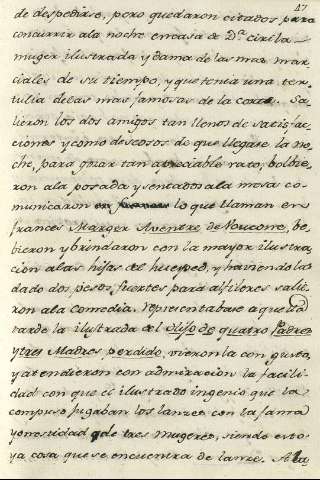 47
de despedirse, pero quedaron citados para
concurrir a la noche en casa de Dª. Cirila
muger ilustrada y dama de las mas mar-
ciales de su tiempo, y que tenia una ter-
tulia de las mas famosas de la corte. Sa-
lieron los dos amigos tan llenos de satisfac-
ciones y como deseosos de que llegase la no-
che, para gozar tan apreciable rato; bolbie-
ron a la posada y sentados a la mesa co-
municaron lo que llaman en
frances Manger
bieron y brindaron con la mayor ilustra-
cion a las hijas del huesped, y haviendolas
dado dos pesos fuertes para alfileres salie-
ron a la Comedia. representabase aquella
tarde la ilustrada del Hijo de quatro Padres
y tres Madres perdido, vieronla con gusto,
y atendieron con admiracion la facili-
dad con que el ilustrado ingenio que la
compuso jugaban los lances con la fama
y onestidad de tres Mugeres, siendo esto
ya cosa que se encuentra de lance. A la